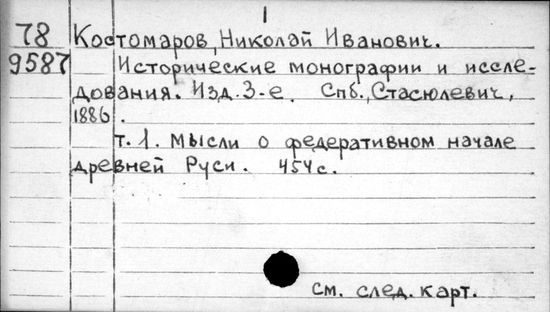 1
78 Костомаров, Николай Иванович.
9587 Исторические монографии и иссле-
дования. Изд. 3-е. Спб., Стасюлевич,
1886.
т. 1. Мысли о федеративном начале
древней Руси. 454 с.
см. след. карт.